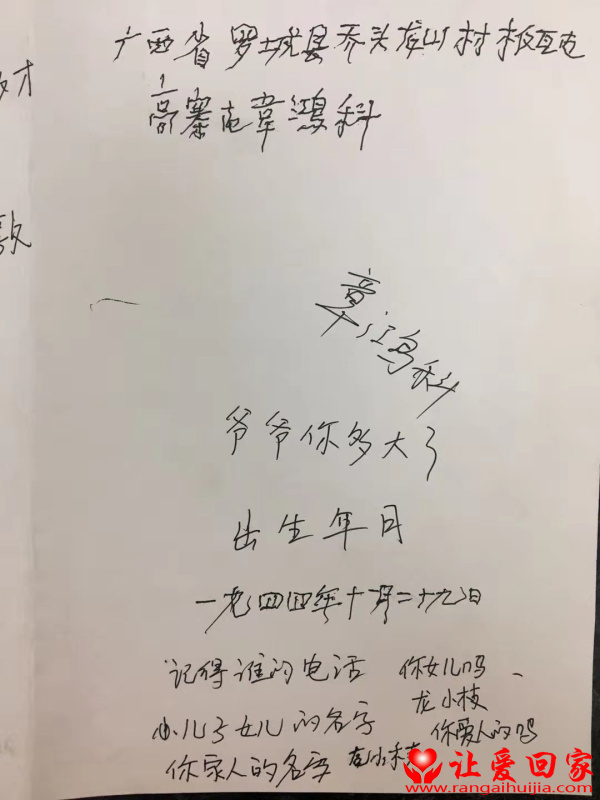 广西省罗城县乔头龙山村板瓦屯
高寨屯韋鴻科
才
韋鴻科
爷爷你多大了
出生年月
一九四四年十月二十九日
记得谁的电话 你女儿吗
龙小枝
小儿子女儿的名字 你爱人的吗
你家人的名字 龙小枝
让爱回家
www.rangaihuijia.com